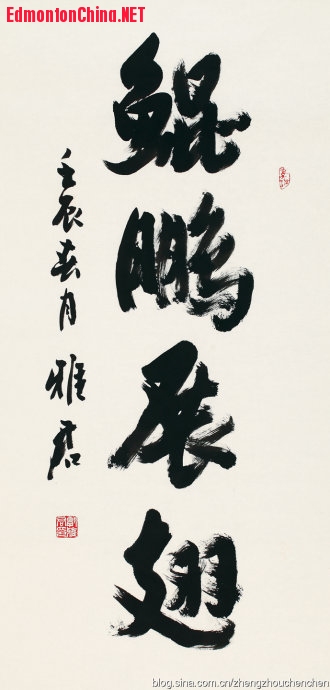 EdmontonChina.NET
鲲鹏展翅
壬辰春月 雅君
blog.sina.com.cn/zhengzhouchenchen